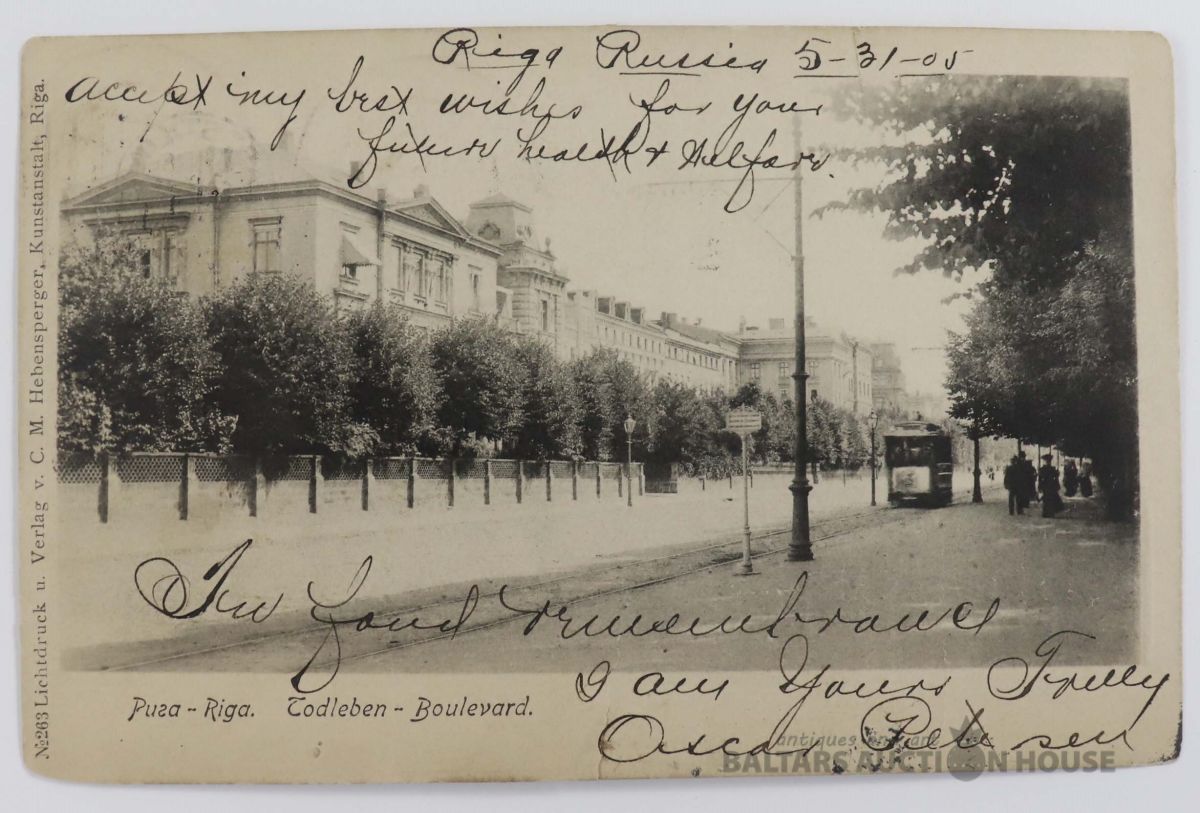 Riga Russia 5-31-05
accept my best wishes for your
future health & Welfare.
In fond remembrance
I am Yours Trully
Oscar Petersen
Рига - Riga. Todleben - Boulevard.
№263 Lichtdruck u. Verlag v. C. M. Hebensperger, Kunstanstalt, Riga.
antiques and art
BALTARS AUCTION HOUSE